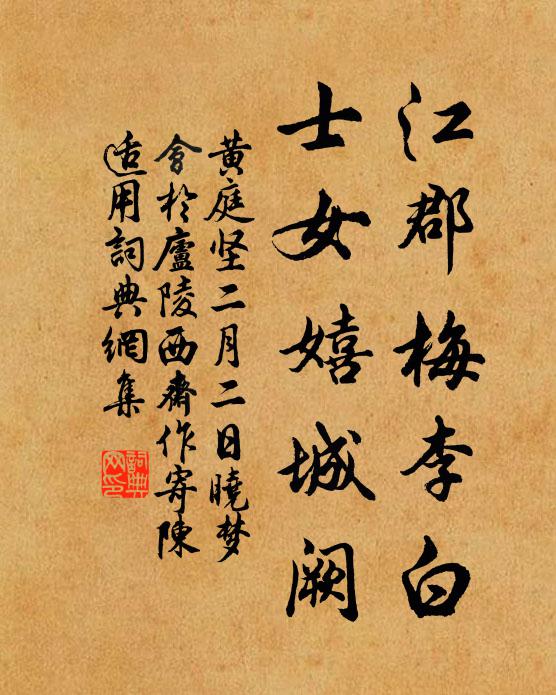 江郡梅李白
士女嬉城闕
黄庭坚二月二日曉梦
會於廬陵西齋作寄陳
适用詞典網集
詞典网印